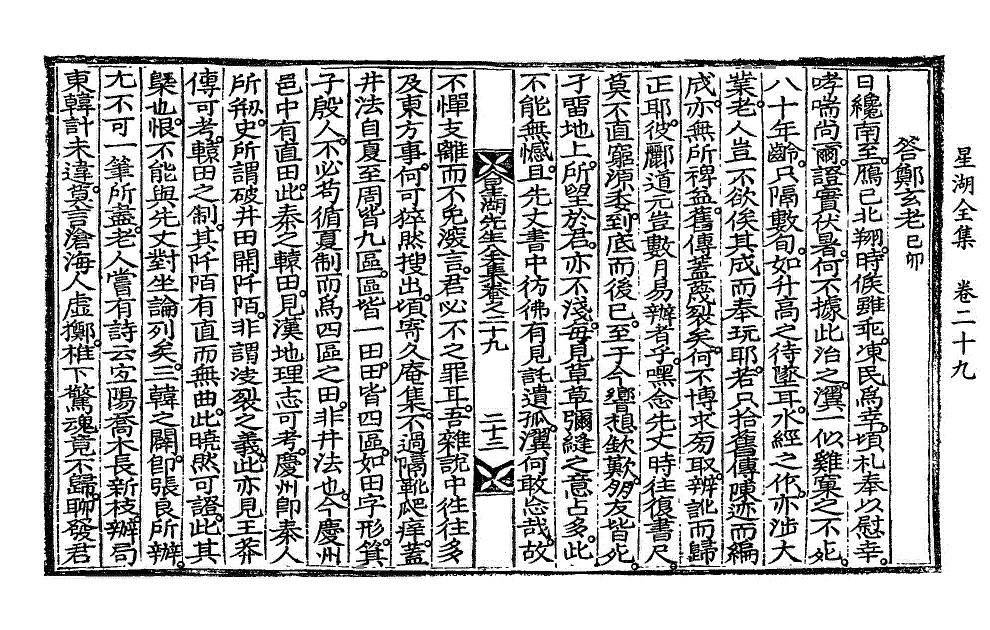 星湖全集 卷二十九
答鄭玄老 己卯
日纔南至。鴈已北翔。時候雖乖。凍民爲幸。頃札奉以慰幸。
哮喘尙爾。證實伏暑。何不據此治之。瀷一似雞菢之不死。
八十年齡。只隔數旬。如升高之待墜耳。水經之作。亦涉大
業。老人豈不欲俟其成而奉玩耶。若只拾舊傳陳迹而編
成。亦無所裨益。舊傳盖蔑裂矣。何不博求芻取。辨訛而歸
正耶。彼酈道元豈數月易辦者乎。嘿念先丈時往復書尺。
莫不直窮源委。到底而後已。至于今響想欽歎。朋友皆死。
孑畱地上。所望於君。亦不淺。每見草草彌縫之意占多。此
不能無憾。且先丈書中彷彿有見託遺孤。瀷何敢忘哉。故
星湖先生全集卷之二十九 二十二
不憚支離而不免深言。君必不之罪耳。吾雜說中往往多
及東方事。何可猝然搜出。頃寄久庵集。不過隔靴爬痒。蓋
井法自夏至周皆九區。區皆一田。田皆四區。如田字形。箕
子殷人。不必苟循夏制而爲四區之田。非井法也。今慶州
邑中有直田。此秦之轅田。見漢地理志可考。慶州卽秦人
所刱。史所謂破井田開阡陌。非謂凌裂之義。此亦見王莽
傳可考。轅田之制。其阡陌有直而無曲。此曉然可證。此其
槩也。恨不能與先丈對坐論列矣。三韓之關。卽張良所辦。
尤不可一筆所盡。老人嘗有詩云宜陽喬木長新枝。辦局
東韓計未違。莫言滄海人虛擲。椎下驚魂竟不歸。聊發君